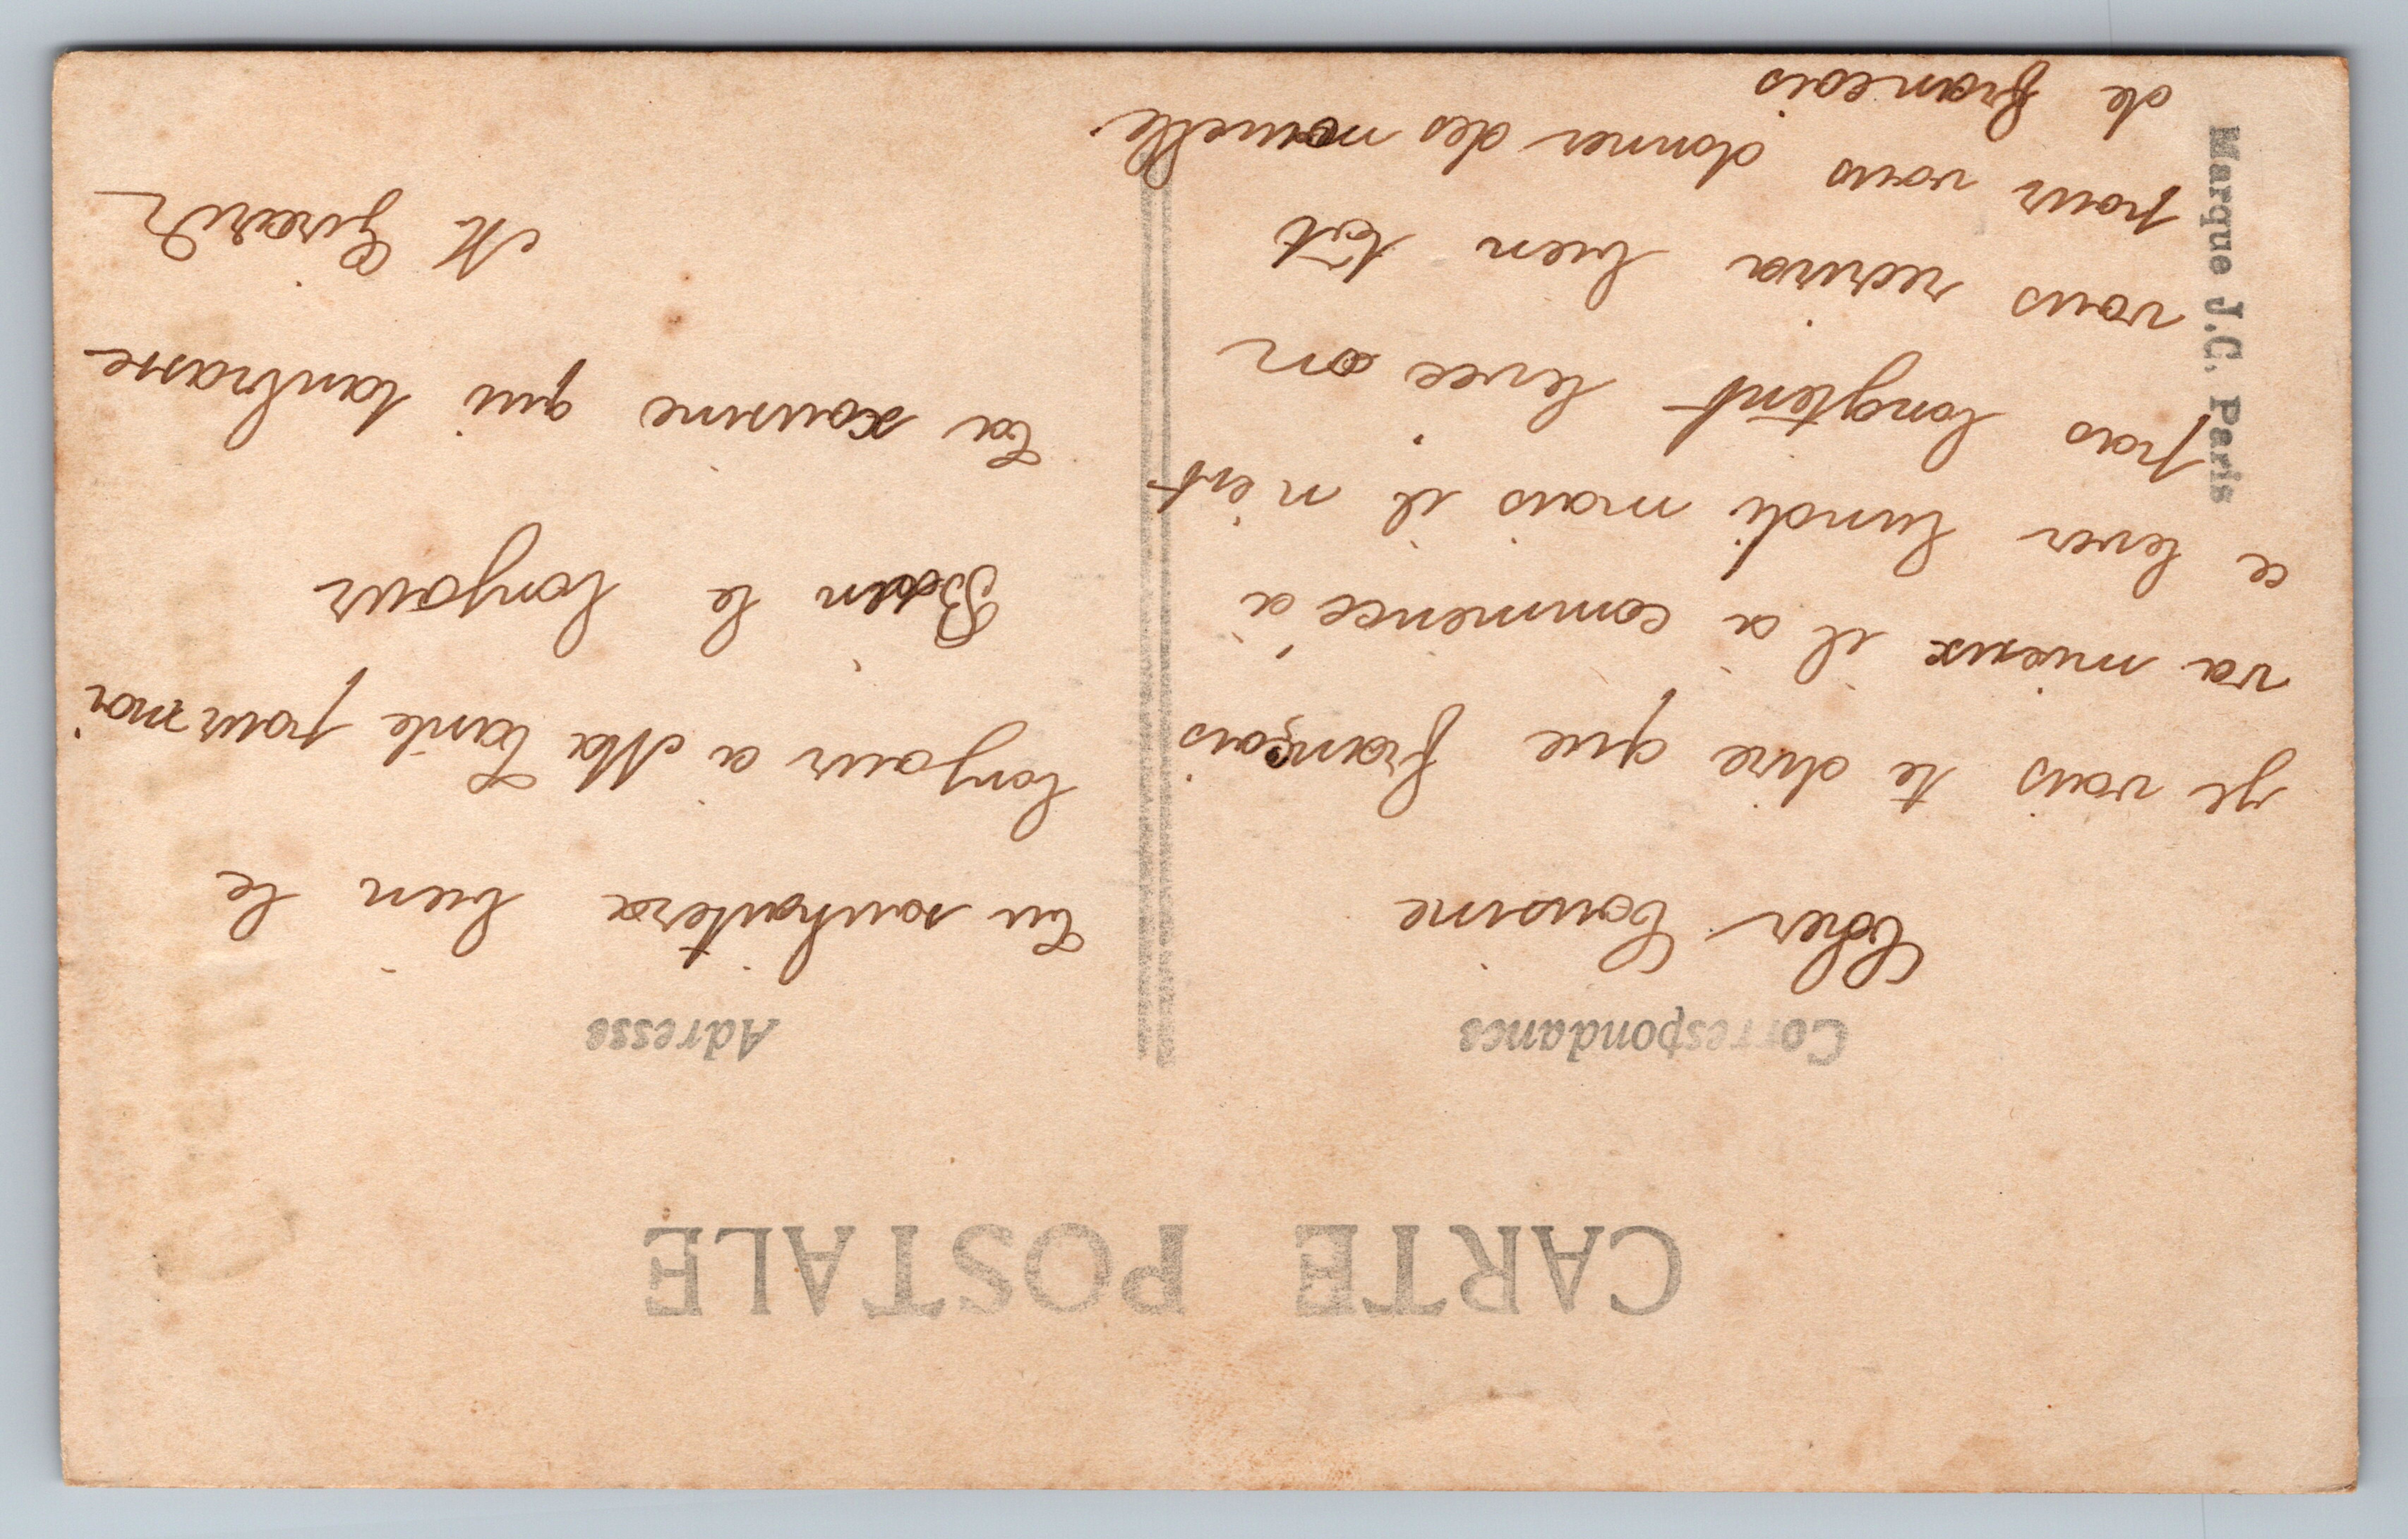 CARTE POSTALE
Correspondance
Cher Cousine
je vais te dire que françois
va mieux il à commencé à
ce lever lundi mais il n'est
pas longtent levée on
vous recrira bien tôt
pour vous donner des nouvelle
de francois
Marque J.C. Paris
Adresse
Tu souhaitera bien le
bonjour à Ma Tante pour moi
Bien le bonjour
Ta cousine qui tanbrasse
M. Girard